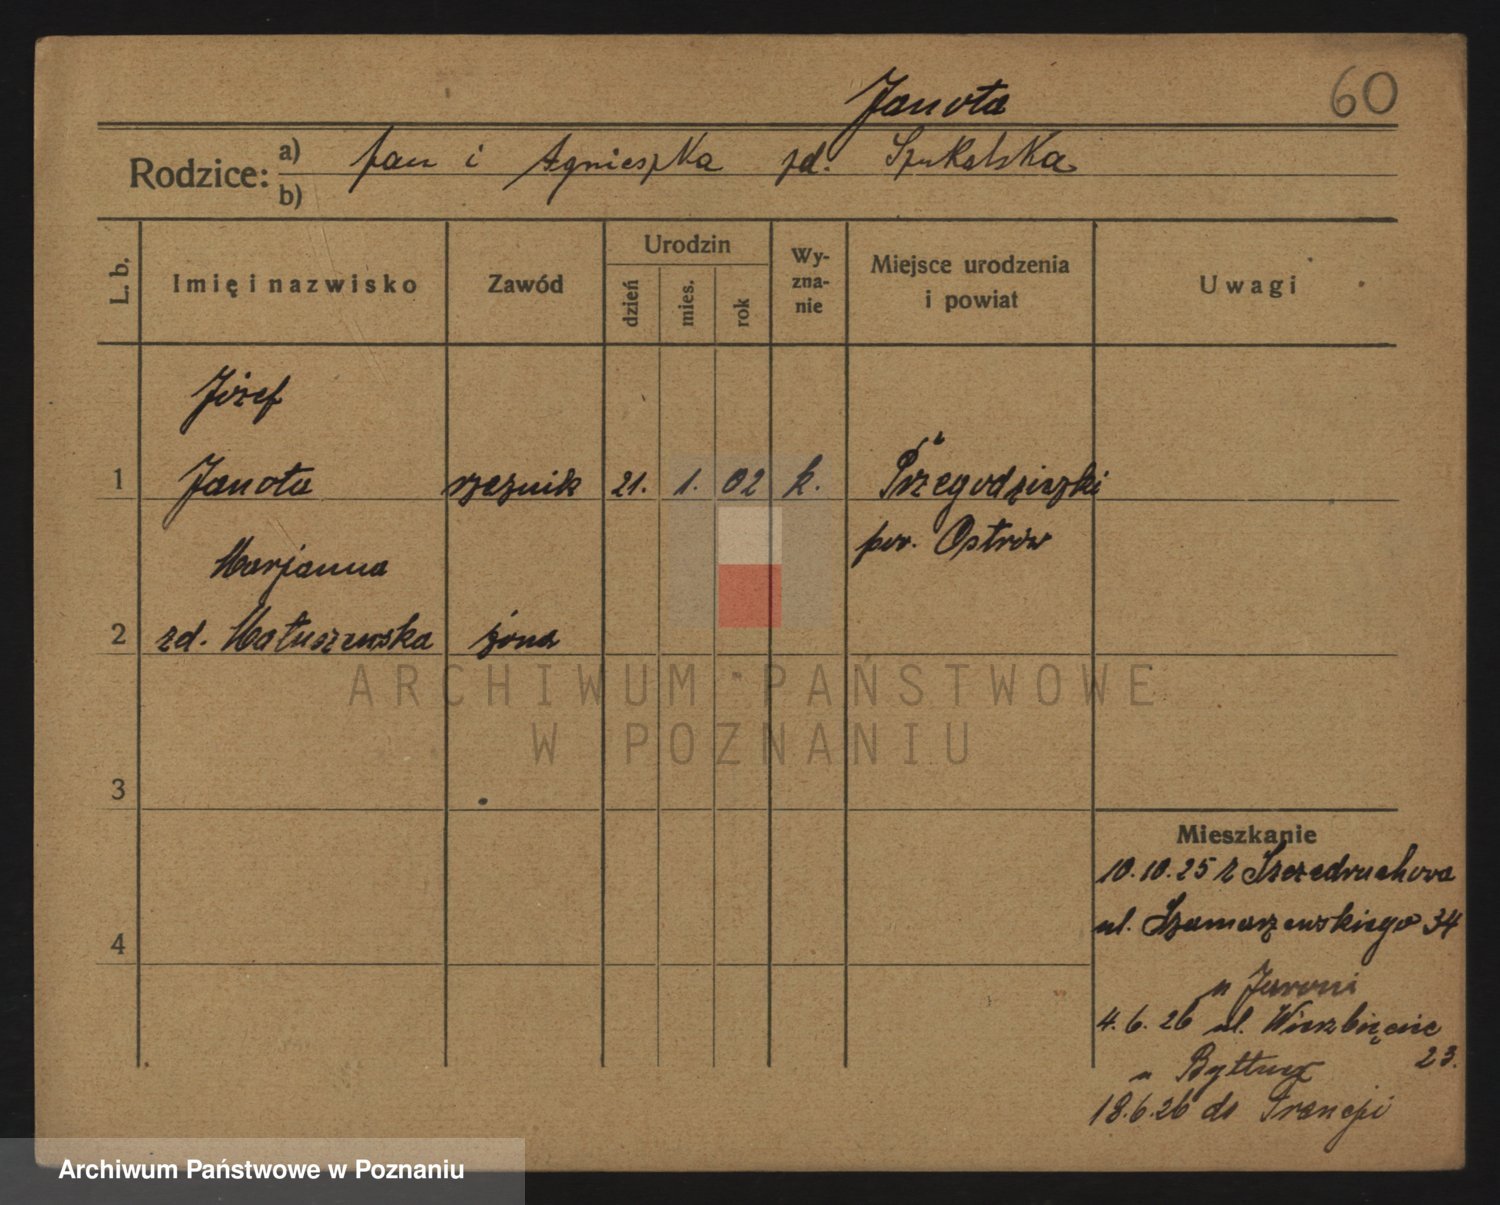 Janota
60
Rodzice: a) Jan i Agnieszka zd. Szukalska
b)
L. b. Imię i nazwisko Zawód Urodzin dzień mies. rok Wy-zna-nie Miejsce urodzenia i powiat Uwagi
Józef
1 Janota rzeznik 21. 1. 02 k. Przygodziczki
pow. Ostrów
Marjanna
2 zd. Matuszewska żona
3
4
Mieszkanie
10.10.25 z
ul. Szamarzewskiego 34
u
4.6.26 ul. Wierzbięcie
23.
u
18.6.26 do Francji
ARCHIWUM PAŃSTWOWE
W POZNANIU
Archiwum Państwowe w Poznaniu